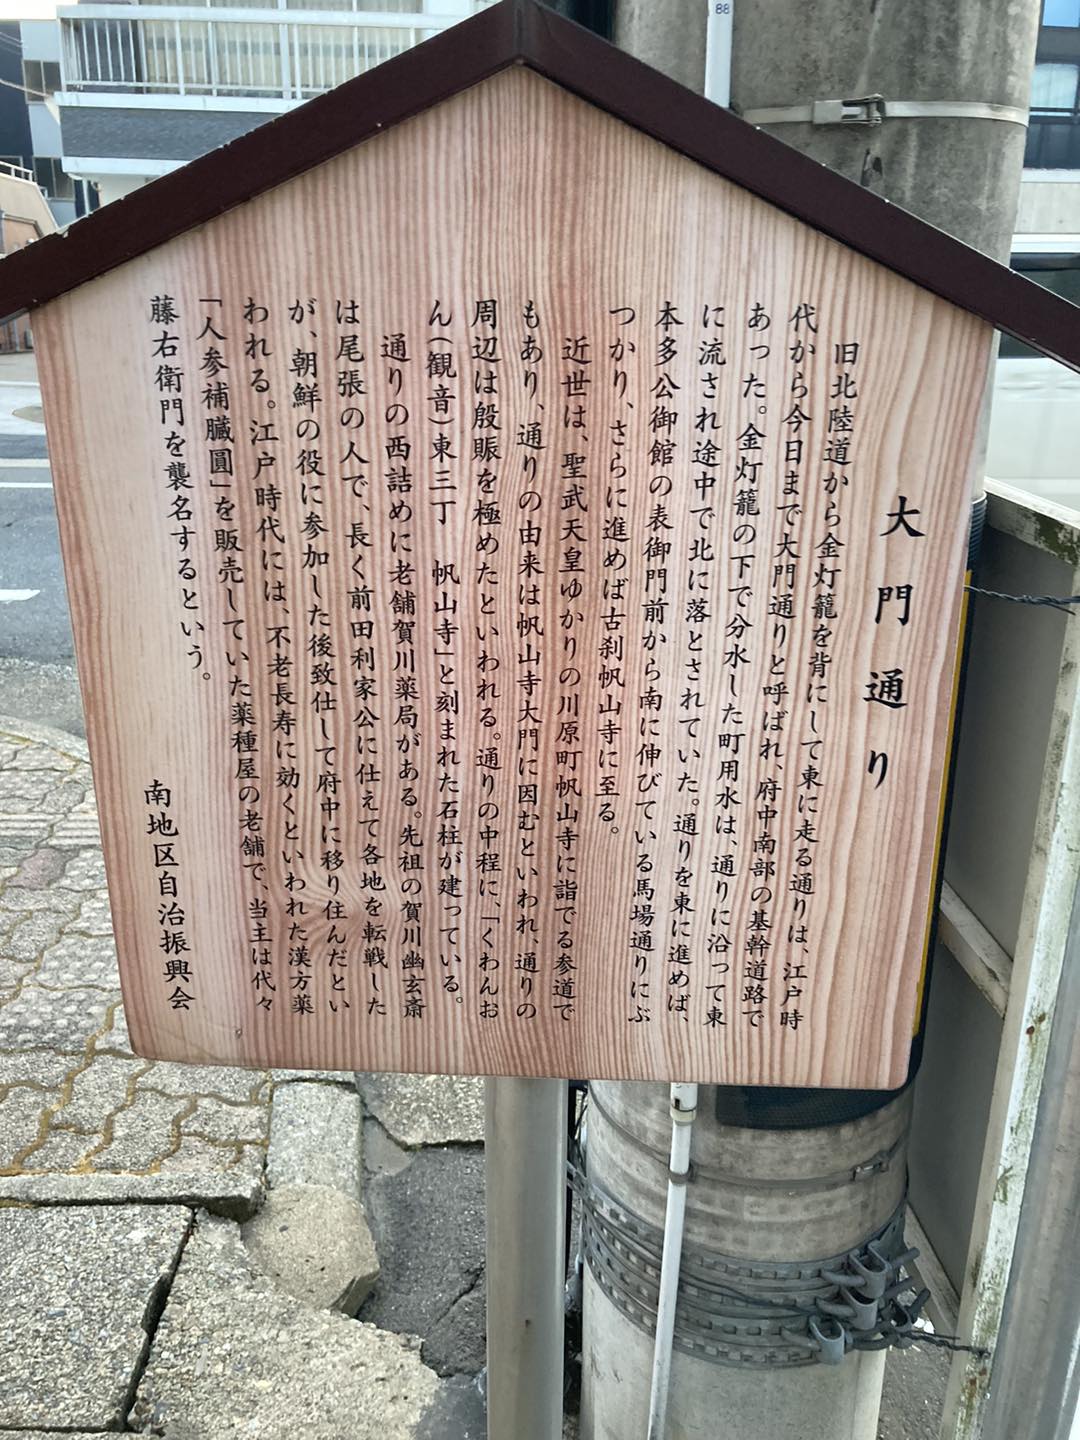 大門通り
旧北陸道から金灯籠を背にして東に走る通りは、江戸時
代から今日まで大門通りと呼ばれ、府中南部の基幹道路で
あった。金灯籠の下で分水した町用水は、通りに沿って東
に流され途中で北に落とされていた。通りを東に進めば、
本多公御館の表御門前から南に伸びている馬場通りにぶ
つかり、さらに進めば古刹帆山寺に至る。
近世は、聖武天皇ゆかりの川原町帆山寺に詣でる参道で
もあり、通りの由来は帆山寺大門に因むといわれ、通りの
周辺は殷賑を極めたといわれる。通りの中程に、「くわんお
ん(観音)東三丁　帆山寺」と刻まれた石柱が建っている。
通りの西詰めに老舗賀川薬局がある。先祖の賀川幽玄斎
は尾張の人で、長く前田利家公に仕えて各地を転戦した
が、朝鮮の役に参加した後致仕して府中に移り住んだとい
われる。江戸時代には、不老長寿に効くといわれた漢方薬
「人参補臓圓」を販売していた薬種屋の老舗で、当主は代々
藤右衛門を襲名するという。
南地区自治振興会
88